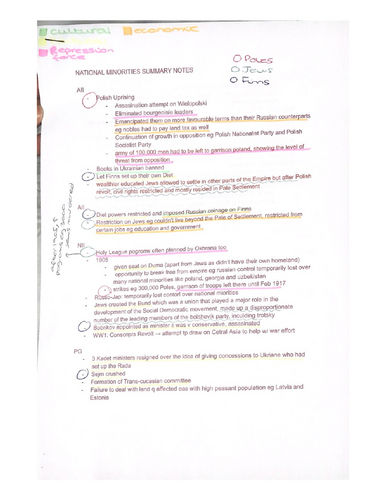 cultural economic
Repression
force
O Poles
O Jews
O Finns
NATIONAL MINORITIES SUMMARY NOTES
AII
- Polish Uprising
- Assasination attempt on Wielopolski
- Eliminated bourgeoisie leaders
- Emancipated them on more favourable terms than their Russian counterparts
eg nobles had to pay land tax as well
- Continuation of growth in opposition eg Polish Nationalist Party and Polish
Socialist Party
- army of 100,000 men had to be left to garrison poland, showing the level of
threat from opposition
- Books in Ukranian banned
- Let Finns set up their own Diet
- wealthier educated Jews allowed to settle in other parts of the Empire but after Polish
revolt, civil rights restricted and mostly resided in Pale Settlement
AIII
- Diet powers restricted and imposed Russian coinage on Finns
- Restriction on Jews eg couldn't live beyond the Pale of Settlement, restricted from
certain jobs eg education and government
NII
- Holy League pogroms often planned by Okhrana too
- 1905
- given seat on Duma (apart from Jews as didn't have their own homeland)
- opportunity to break free from empire eg russian control temporarily lost over
many national minorities like poland, georgia and uzbekistan
- strikes eg 300,000 Poles, garrison of troops left there until Feb 1917
- Russo-Jap: temporarily lost contorl over national miorities
- Jews created the Bund which was a union that played a major role in the
development of the Social Democratic movement, made up a disproportionate
number of the leading members of the bolshevik party, inculding trotsky
- Bobrikov appointed as minister it was v conservative, assasinated
- WW1: Conscripts Revolt → attempt tp draw on Cetral Asia to help war effort
PG
- 3 Kadet ministers resigned over the idea of giving concessions to Ukraine who had
set up the Rada
- Sejm crushed
- Formation of Trans-cucasian committee
- Failure to deal with land q affected eas with high peasant population eg Latvia and
Estonia